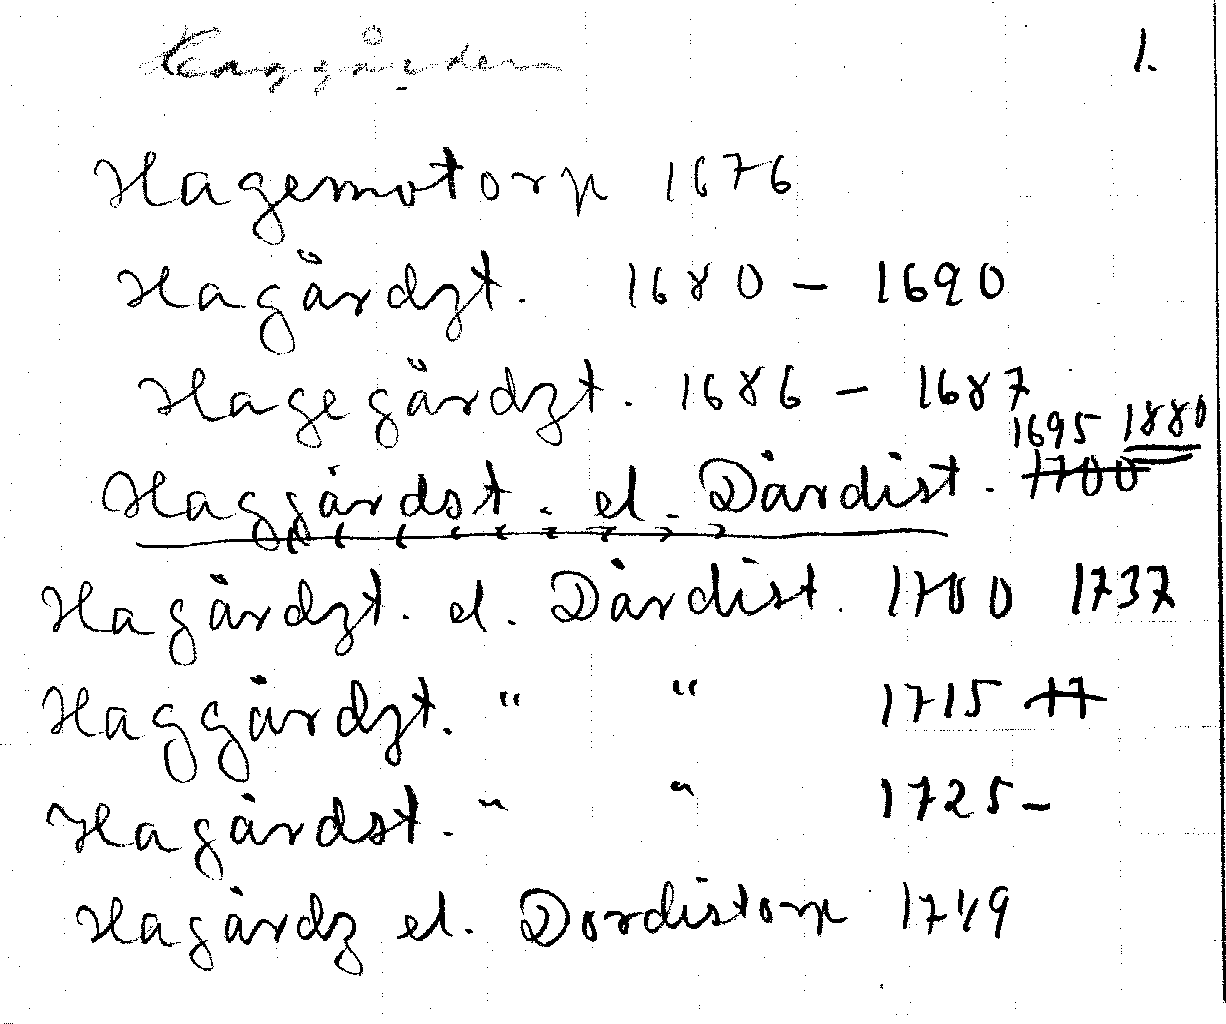 Haggården 1.
Hagemotorp 1676
Hagårdzt. 1680 – 1690
Hagegårdzt. 1686 – 1687
1695 1880
Haggårdst. el. Dårdist. 1700
Hagårdzt. el. Dårdist. 1700 1737
Haggårdzt. " " 1715 17
Hagårdst. " " 1725 –
Hagårdz el. Dordistorp 1749